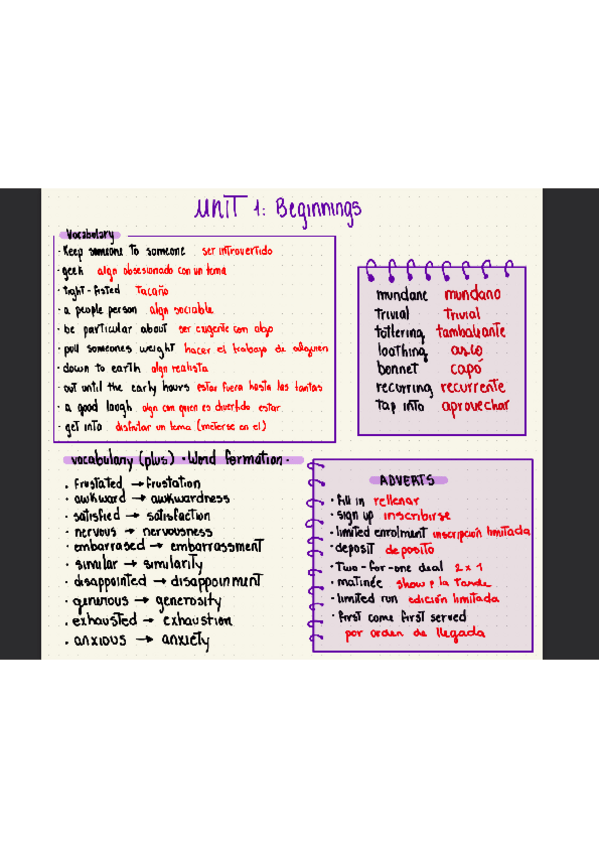 UNIT 1: Beginnings
Vocabulary
· Keep someone to someone ser introvertido
· geek algn obsesionado con un tema
· tight-fisted Tacaño
· a people person algn sociable
· be particular about ser exigente con algo
· pull someones weight hacer el trabajo de alguien
· down to earth algn realista
· out until the early hours estar fuera hasta las tantas
· a good laugh algn con quien es divertido estar
· get into disfrutar un tema (meterse en el)
mundane mundano
trivial trivial
tottering tambaleante
loathing asco
bonnet capó
recurring recurrente
tap into aprovechar
vocabulary (plus) · Word formation ·
· frustated → frustation
· awkward → awkwardness
· satisfied → satisfaction
· nervous → nervousness
· embarrased → embarrassment
· similar → similarity
· disappointed → disappoinment
· generious → generosity
· exhausted → exhaustion
· anxious → anxiety
ADVERTS
· fill in rellenar
· sign up inscribirse
· limited enrolment inscripción limitada
· deposit deposito
· Two-for-one deal 2x1
· matinée show x la tarde
· limited run edición limitada
· first come first served
por orden de llegada